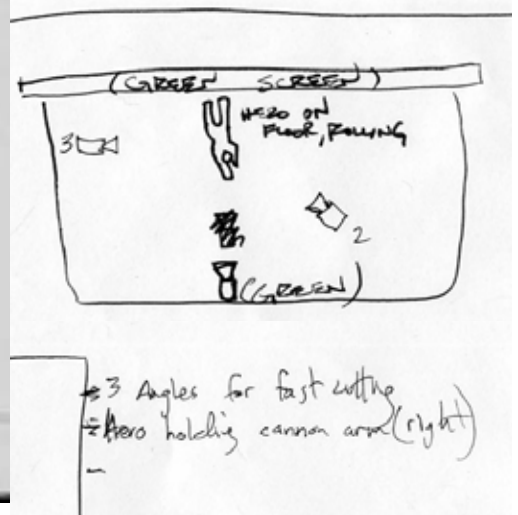 (GREEN SCREEN)
HERO ON
FLOOR, ROLLING
3
2
(GREEN)
3 Angles for fast cutting
Hero holding cannon arm (right)
-